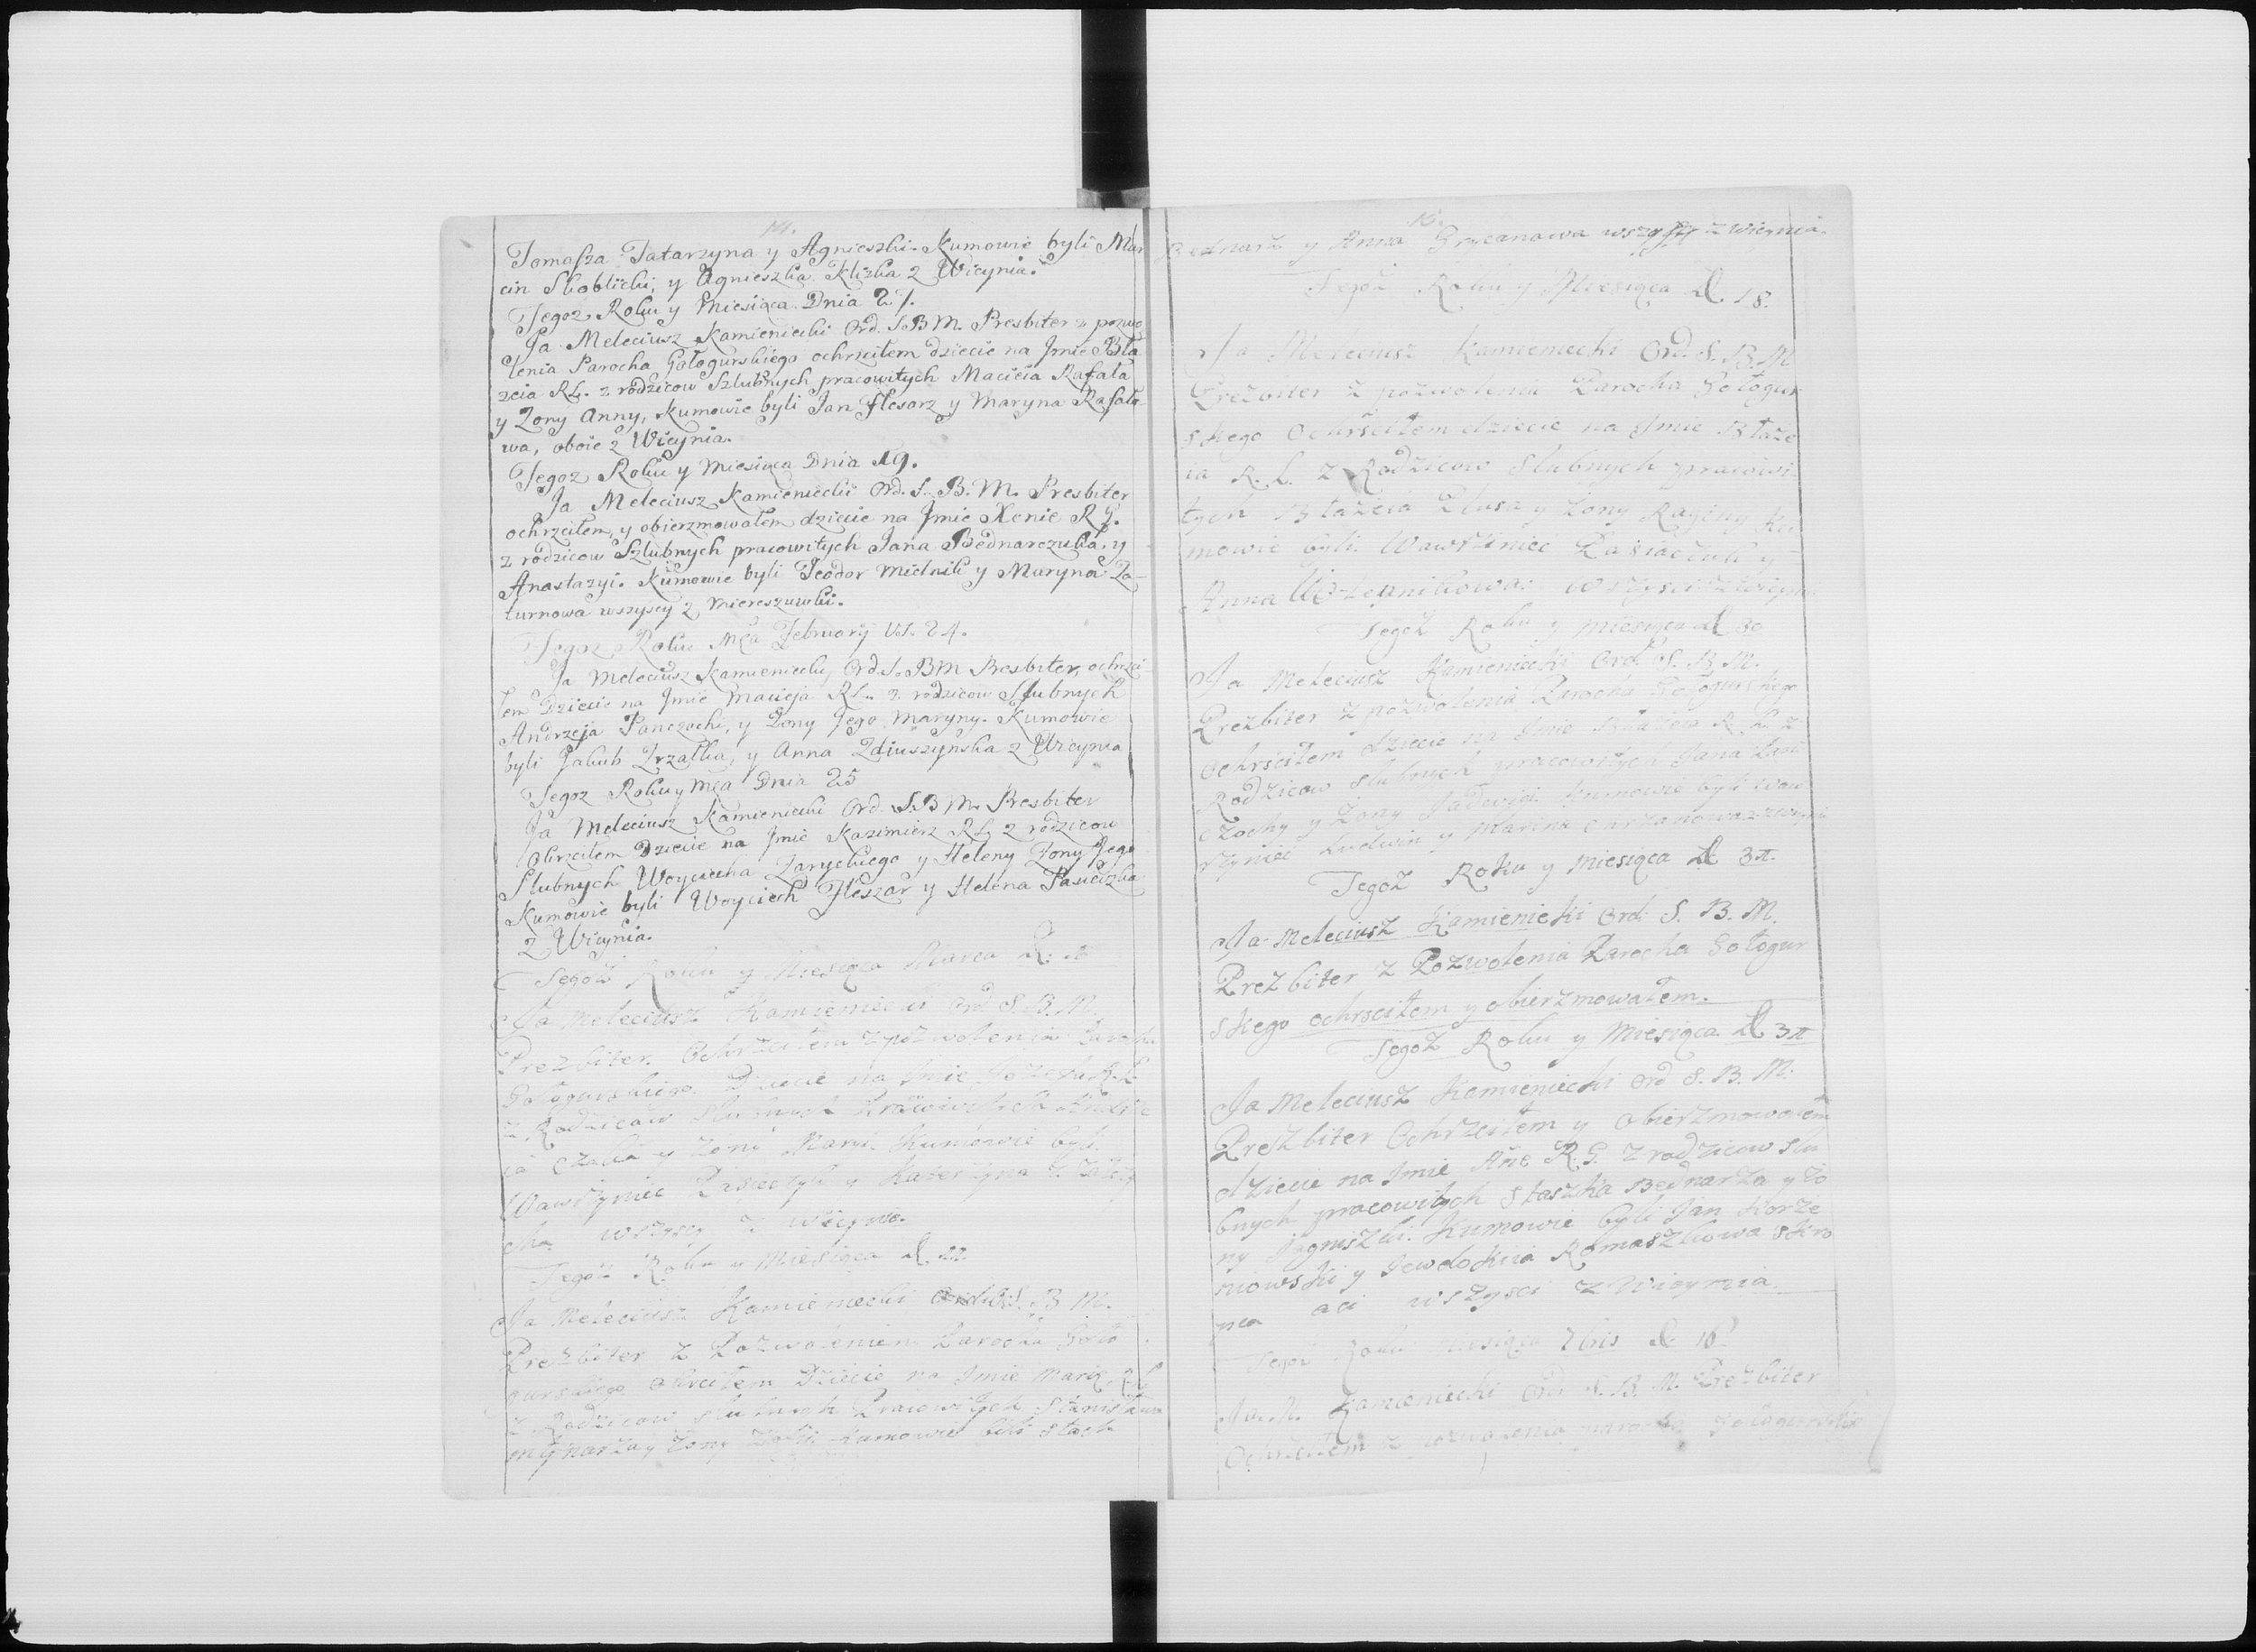 14.
Tomasza Tatarzyna y Agnieszki. Kumowie byli Mar
cin Skoblicki, y Agnieszka Klizka z Wicynia.
Tegoz Roku y Miesiąca Dnia 27.
Ja Meleciusz Kamieniecki Ord. S. B M. Presbiter z pozwo
lenia Parocha Gołogurskiego ochrzciłem dziecie na Jmie Bła
zeia RL. z rodzicow Szlubnych pracowitych Macieia Rafała
y Zony Anny, Kumowie byli Jan Flesarz y Maryna Rafało
wa, oboie z Wicynia.
Tegoz Roku y Miesiąca Dnia 19.
Ja Meleciusz Kamieniecki Ord. S. B. M. Presbiter
ochrzciłem y obierzmowałem dziecie na Jmie Xenie R G.
z rodzicow Szlubnych pracowitych Jana Bednarczuka, y
Anastazyi. Kumowie byli Teodor Mielnik y Maryna Za-
turnowa wszyscy z Miereszuwki.
Tegoz Roku Mca February V.s. 24.
Ja Meleciusz Kamieniecki, Ord. S. BM Presbiter, ochrzci
łem Dziecie na Jmie Macieja RL. z rodzicow Slubnych
Andrzeja Panczochi, y Zony Jego Maryny. Kumowie
byli Jakub Zrzałka, y Anna Zdiuszynska z Wicynia
Tegoz Roku y Mca Dnia 25
Ja Meleciusz Kamieniecki Ord. S. B M. Presbiter
Ohrzciłem Dziecie na Jmie Kazimierz RL z rodzicow
Slubnych Woyciecha Zaryckiego y Heleny Zony Jego
Kumowie byli Woyciech Fleszar y Helena Pasieczka
z Wicynia.
Tegoż Roku y Miesiąca Marca d.
Ja Meleciusz Kamieniecki Ord S. B. M.
Prezbiter. Ochrzciłem z pozwolenia Parocha
Gołogurskiego Dziecie na Jmie Jozefa R. L.
z Rodzicow Slubnych Pracowitych
y Zoni Maryi. Kumowie byli
Wawrzyniec y Katerzyna
wszyscy z Wicynia.
Tegoż Roku y Miesiąca d. 22
Ja Meleciusz Kamieniecki Ord. S. B M.
Prezbiter z Pozwoleniem Parocha Goło
gurskiego Ohrciłem Dziecie na Jmie Marie, R L
z Rodzicow slubnych Pracowitych Stanisława
młynarza y Zony Kumowie bili Stach
15.
Bednarz y Anna Grycanowa wszyscy z Wicynia.
Tegoż Roku y Miesiąca d. 18.
Ja Meleciusz Kamieniecki Ord. S. B. M
Prezbiter z pozwolenia Parocha Gołogur
skiego Ochrściłem dziecie na Jmie Błaże
ia R. L. z Rodzicow Slubnych pracowi
tych Błażeia Plusa y Zony Raginy Ku
mowie byli Wawrziniec Pasiaczuk y
Anna wszysci z Wicynia
Tegoż Roku y Miesiąca d 30
Ja Meleciusz Kamieniecki Ord. S. B. M.
Prezbiter z pozwolenia Parocha Gołogurskiego
Ochrściłem dziecie na Jmie Błażeia R. L. z
Rodzicow slubnych pracowitych Jana Pan
czochy y Zony Jadwigi. Kumowie byli Waw
rzyniec Ludwin y Marina
Tegoż Roku y Miesiąca d 3π.
Ja Meleciusz Kamieniecki Ord. S. B. M.
Prezbiter z Pozwolenia Parocha Gołogur
skiego ochrsciłem y obierzmowałem.
Tegoż Roku y Miesiąca d 3π
Ja Meleciusz Kamieniecki Ord S. B. M.
Preszbiter Ochrzciłem y obierzmowałem
dziecie na Jmie Ańe R. G. z rodzicow slu
bnych pracowitych Staszka Bednarza y Zo
ny Jagnuszki. Kumowie byli Jan Korze
niowski y Jewdokiia Romaszkowa
wszysci z Wicynia
Tegoż Roku miesiąca 7bris d. 16
Ja M. Kamieniecki Ord S. B. M. Prezbiter
Ochrzciłem z pozwolenia parocha